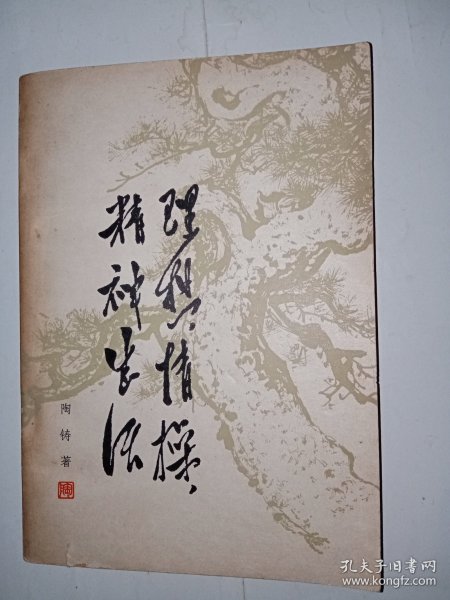 理想，情操，
精神生活
陶铸著
孔夫子旧书网
www.kongfz.com